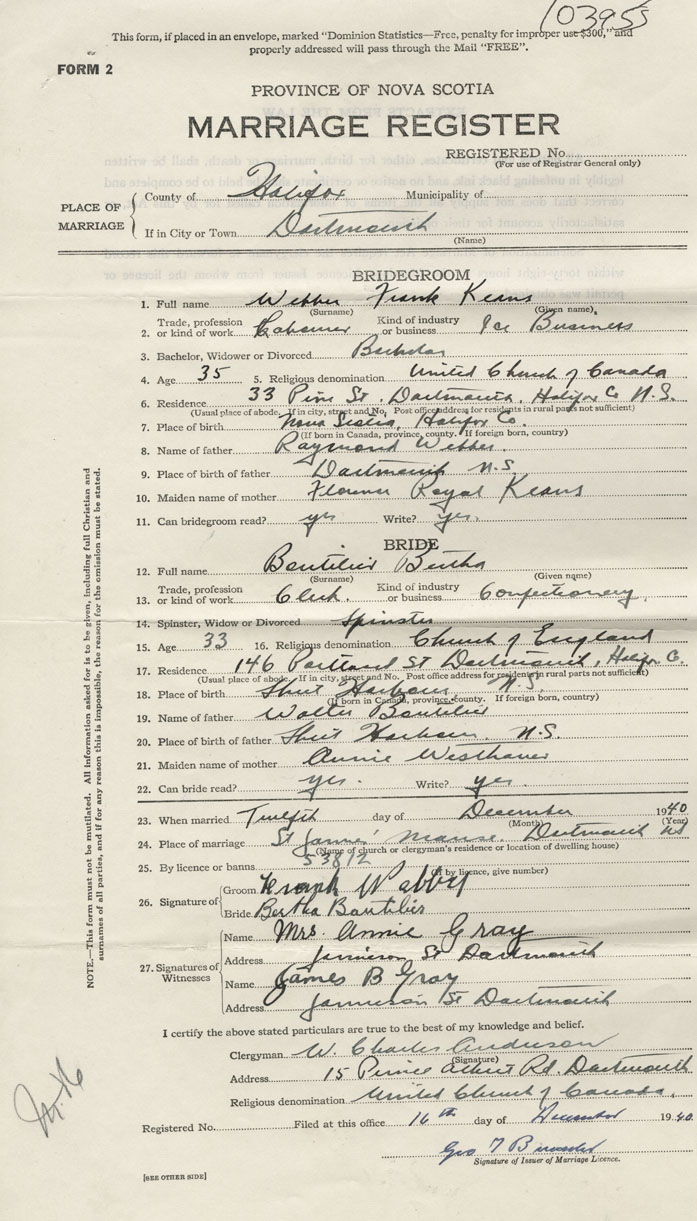 103955
This form, if placed in an envelope, marked "Dominion Statistics—Free, penalty for improper use $300," and
properly addressed will pass through the Mail "FREE".
FORM 2
PROVINCE OF NOVA SCOTIA
MARRIAGE REGISTER
REGISTERED No.
(For use of Registrar General only)
PLACE OF MARRIAGE
County of Halifax Municipality of
If in City or Town Dartmouth
(Name)
BRIDEGROOM
1. Full name Webber Frank Keans
(Surname) (Given name)
2. Trade, profession or kind of work Kind of industry or business Ice Business
3. Bachelor, Widower or Divorced Bachelor
4. Age 35 5. Religious denomination United Church of Canada
6. Residence 33 Pine St, Dartmouth, Halifax Co N.S.
(Usual place of abode. If in city, street and No. Post office address for residents in rural parts not sufficient)
7. Place of birth Nova Scotia, Halifax Co.
(If born in Canada, province, county. If foreign born, country)
8. Name of father Raymond Webber
9. Place of birth of father Dartmouth N.S.
10. Maiden name of mother Florence Royal Keans
11. Can bridegroom read? yes Write? yes.
BRIDE
12. Full name Boutilier Bertha
(Surname) (Given name)
13. Trade, profession or kind of work Clerk. Kind of industry or business Confectionery
14. Spinster, Widow or Divorced Spinster
15. Age 33 16. Religious denomination Church of England
17. Residence 146 Portland St Dartmouth, Halifax C.
(Usual place of abode. If in city, street and No. Post office address for residents in rural parts not sufficient)
18. Place of birth Sheet Harbour, N.S.
(If born in Canada, province, county. If foreign born, country)
19. Name of father Walter Boutilier
20. Place of birth of father Sheet Harbour, N.S.
21. Maiden name of mother Annie Westhaver
22. Can bride read? yes. Write? yes
23. When married Twelfth day of December 1940
(Month) (Year)
24. Place of marriage St James' Manse. Dartmouth NS
(Name of church or clergyman's residence or location of dwelling house)
25. By licence or banns 53812
(If by licence, give number)
26. Signature of
Groom Frank
Bride Bertha Boutilier
27. Signatures of Witnesses
Name Mrs. Annie Gray
Address Jamieson St Dartmouth
Name James B Gray
Address Jamieson St Dartmouth
I certify the above stated particulars are true to the best of my knowledge and belief.
Clergyman W. Charles Anderson
(Signature)
Address 15 Prince Albert Rd. Dartmouth
Religious denomination United Church of Canada,
Registered No. Filed at this office 16th day of December 1940
Geo T
Signature of Issuer of Marriage Licence.
[SEE OTHER SIDE]
NOTE.—This form must not be mutilated. All information asked for is to be given, including full Christian and
surnames of all parties, and if for any reason this is impossible, the reason for the omission must be stated.